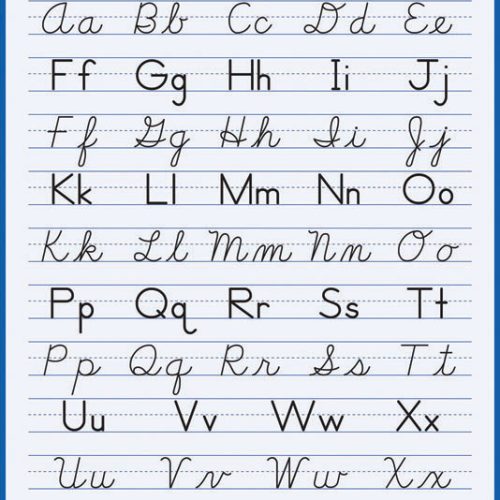 Aa Bb Cc Dd Ee
Ff Gg Hh Ii Jj
Ff Gg Hh Ii Jj
Kk Ll Mm Nn Oo
Kk Ll Mm Nn Oo
Pp Qq Rr Ss Tt
Pp Qq Rr Ss Tt
Uu Vv Ww Xx
Uu Vv Ww Xx